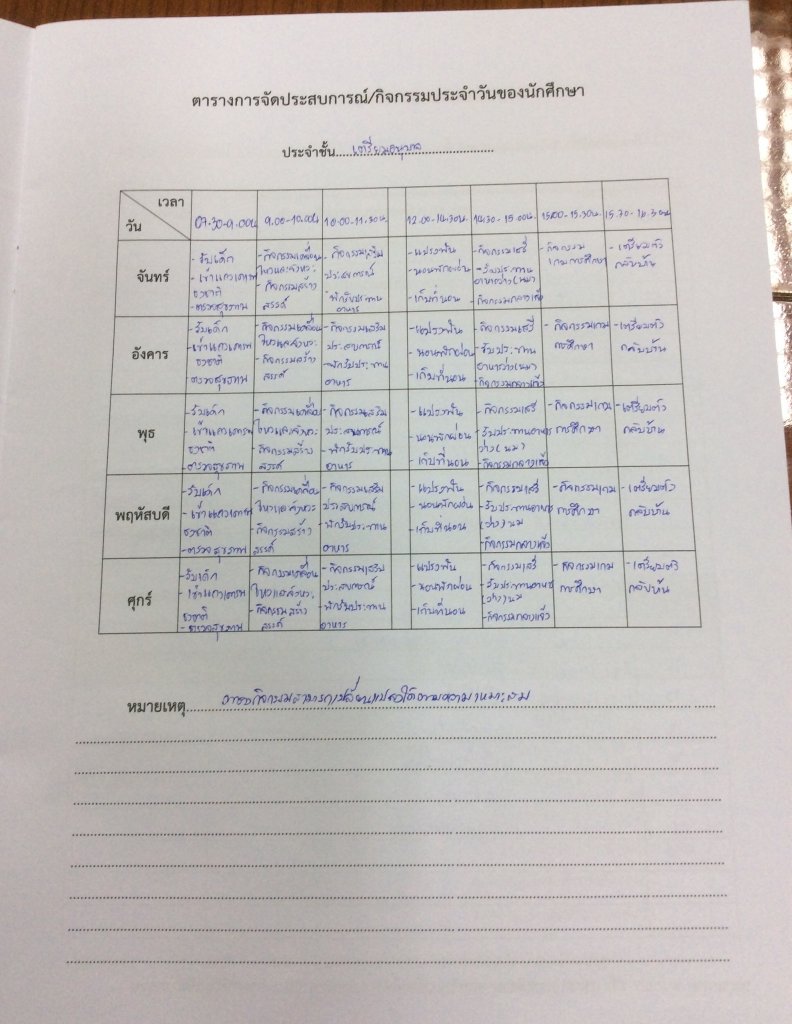 ตารางการจัดประสบการณ์/กิจกรรมประจำวันของนักศึกษา
ประจำชั้น เตรียมอนุบาล
เวลา
วัน
07.30-9.00น 9.00-10.00น 10.00-11.30น. 12.00-14.30น. 14.30-15.00น. 15.00-15.30น.
จันทร์
- รับเด็ก
- เข้าแถวเคารพ
ธงชาติ
- ตรวจสุขภาพ
- กิจกรรมเคลื่อน
ไหวและจังหวะ
- กิจกรรมสร้าง
สรรค์
- กิจกรรมเสริม
ประสบการณ์
- พักรับประทาน
อาหาร
- แปรงฟัน
- นอนพักผ่อน
- เก็บที่นอน
- กิจกรรมเสรี
- รับประทาน
อาหารว่าง(นม)
- กิจกรรมกลางแจ้ง
- กิจกรรม
เกมการศึกษา
- เตรียมตัว
กลับบ้าน
อังคาร
- รับเด็ก
- เข้าแถวเคารพ
ธงชาติ
- ตรวจสุขภาพ
- กิจกรรมเคลื่อน
ไหวและจังหวะ
- กิจกรรมสร้าง
สรรค์
- กิจกรรมเสริม
ประสบการณ์
- พักรับประทาน
อาหาร
- แปรงฟัน
- นอนพักผ่อน
- เก็บที่นอน
- กิจกรรมเสรี
- รับประทาน
อาหารว่าง(นม)
- กิจกรรมกลางแจ้ง
- กิจกรรมเกม
การศึกษา
- เตรียมตัว
กลับบ้าน
พุธ
- รับเด็ก
- เข้าแถวเคารพ
ธงชาติ
- ตรวจสุขภาพ
- กิจกรรมเคลื่อน
ไหวและจังหวะ
- กิจกรรมสร้าง
สรรค์
- กิจกรรมเสริม
ประสบการณ์
- พักรับประทาน
อาหาร
- แปรงฟัน
- นอนพักผ่อน
- เก็บที่นอน
- กิจกรรมเสรี
- รับประทานอาหาร
ว่าง(นม)
- กิจกรรมกลางแจ้ง
- กิจกรรมเกม
การศึกษา
- เตรียมตัว
กลับบ้าน
พฤหัสบดี
- รับเด็ก
- เข้าแถวเคารพ
ธงชาติ
- ตรวจสุขภาพ
- กิจกรรมเคลื่อน
ไหวและจังหวะ
- กิจกรรมสร้าง
สรรค์
- กิจกรรมเสริม
ประสบการณ์
- พักรับประทาน
อาหาร
- แปรงฟัน
- นอนพักผ่อน
- เก็บที่นอน
- กิจกรรมเสรี
- รับประทานอาหาร
(ว่าง) นม
- กิจกรรมกลางแจ้ง
- กิจกรรมเกม
การศึกษา
- เตรียมตัว
กลับบ้าน
ศุกร์
- รับเด็ก
- เข้าแถวเคารพ
ธงชาติ
- ตรวจสุขภาพ
- กิจกรรมเคลื่อน
ไหวและจังหวะ
- กิจกรรมสร้าง
สรรค์
- กิจกรรมเสริม
ประสบการณ์
- พักรับประทาน
อาหาร
- แปรงฟัน
- นอนพักผ่อน
- เก็บที่นอน
- กิจกรรมเสรี
- รับประทานอาหาร
(ว่าง) นม
- กิจกรรมกลางแจ้ง
- กิจกรรมเกม
การศึกษา
- เตรียมตัว
กลับบ้าน
หมายเหตุ ตารางกิจกรรมสามารถเปลี่ยนแปลงได้ตามความเหมาะสม